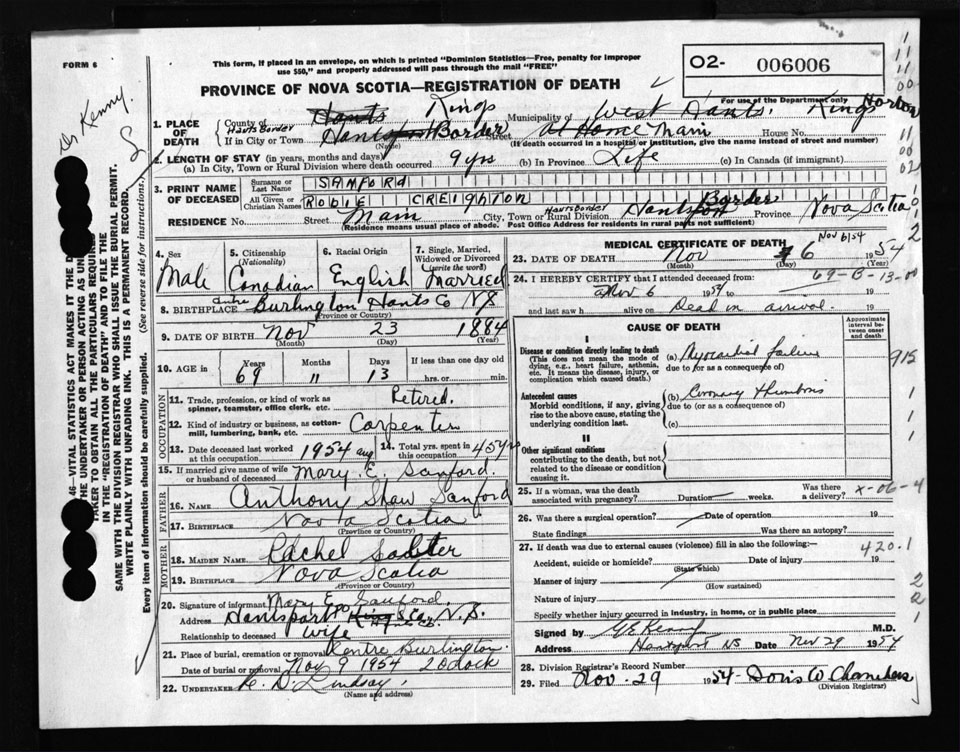 FORM 6
This form, if placed in an envelope, on which is printed "Dominion Statistics—Free, penalty for improper
use $50," and properly addressed will pass through the mail "FREE"
O2- 006006
For use of the Department only
PROVINCE OF NOVA SCOTIA—REGISTRATION OF DEATH
Dr Kenny.
46—VITAL STATISTICS ACT MAKES IT THE D
THE UNDERTAKER OR PERSON ACTING AS UN
TAKER TO OBTAIN ALL THE PARTICULARS REQUIRE
IN THE "REGISTRATION OF DEATH" AND TO FILE THE
SAME WITH THE DIVISION REGISTRAR WHO SHALL ISSUE THE BURIAL PERMIT.
WRITE PLAINLY WITH UNFADING INK. THIS IS A PERMANENT RECORD.
Every item of information should be carefully supplied. (See reverse side for instructions.)
1. PLACE OF DEATH County of Hants Kings Municipality of West Hants. Kings
Hants Border
If in City or Town Hantsport Border Street at Home Main House No.
(Name) (If death occurred in a hospital or institution, give the name instead of street and number)
2. LENGTH OF STAY (in years, months and days)
(a) In City, Town or Rural Division where death occurred 9 yrs (b) In Province Life (c) In Canada (if immigrant)
3. PRINT NAME OF DECEASED Surname or Last Name SANFORD
All Given or Christian Names ROBIE CREIGHTON
RESIDENCE No. Street Main City, Town or Rural Division Hants Border Hantsport Border Province Nova Scotia
(Residence means usual place of abode. Post Office Address for residents in rural parts not sufficient)
4. Sex Male
5. Citizenship (Nationality) Canadian
6. Racial Origin English
7. Single, Married, Widowed or Divorced (write the word) Married
8. BIRTHPLACE Centre Burlington Hants Co NS
(Province or Country)
9. DATE OF BIRTH Nov 23 1884
(Month) (Day) (Year)
10. AGE in Years 69 Months 11 Days 13 If less than one day old
hrs. or min.
OCCUPATION
11. Trade, profession, or kind of work as
spinner, teamster, office clerk, etc. Retired.
12. Kind of industry or business, as cotton-
mill, lumbering, bank, etc. Carpenter
13. Date deceased last worked at this occupation 1954 aug 14. Total yrs. spent in this occupation 45 yrs
15. If married give name of wife
or husband of deceased Mary. E. Sanford.
FATHER
16. NAME Anthony Shaw Sanford
17. BIRTHPLACE Nova Scotia
(Province or Country)
MOTHER
18. MAIDEN NAME Rachel
19. BIRTHPLACE Nova Scotia
(Province or Country)
20. Signature of informant Mary E Sanford
Address Hantsport Kings Co. N.S.
Hants Co.
Relationship to deceased wife
21. Place of burial, cremation or removal Centre Burlington.
Date of burial or removal Nov 9 1954 2 Oclock
22. UNDERTAKER R. D. Lindsay.
(Name and address)
MEDICAL CERTIFICATE OF DEATH
Nov 6/54
23. DATE OF DEATH Nov 6 1954
(Month) (Day)
69-B-13-00
24. I HEREBY CERTIFY that I attended deceased from:
Nov 6 1954 to 19
and last saw h alive on Dead on arrival.
CAUSE OF DEATH
Approximate interval between onset and death
I
Disease or condition directly leading to death
(This does not mean the mode of
dying, e.g., heart failure, asthenia,
etc. It means the disease, injury, or
complication which caused death.)
(a) Myocardial failure
due to (or as a consequence of)
915
Antecedent causes
Morbid conditions, if any, giving
rise to the above cause, stating the
underlying condition last.
(b) Coronary thrombosis
due to (or as a consequence of)
(c)
II
Other significant conditions
contributing to the death, but not
related to the disease or condition
causing it.
25. If a woman, was the death associated with pregnancy? Duration weeks. Was there a delivery?
X-06-4
26. Was there a surgical operation? Date of operation 19
State findings Was there an autopsy?
27. If death was due to external causes (violence) fill in also the following:—
420.1
Accident, suicide or homicide? Date of injury 19
(State which)
Manner of injury
(How sustained)
Nature of injury
Specify whether injury occurred in industry, in home, or in public place
Signed by M.D.
Address Hantsport NS Date Nov 29 1954
28. Division Registrar's Record Number
29. Filed Nov. 29 1954 Doris W Chambers
(Division Registrar)